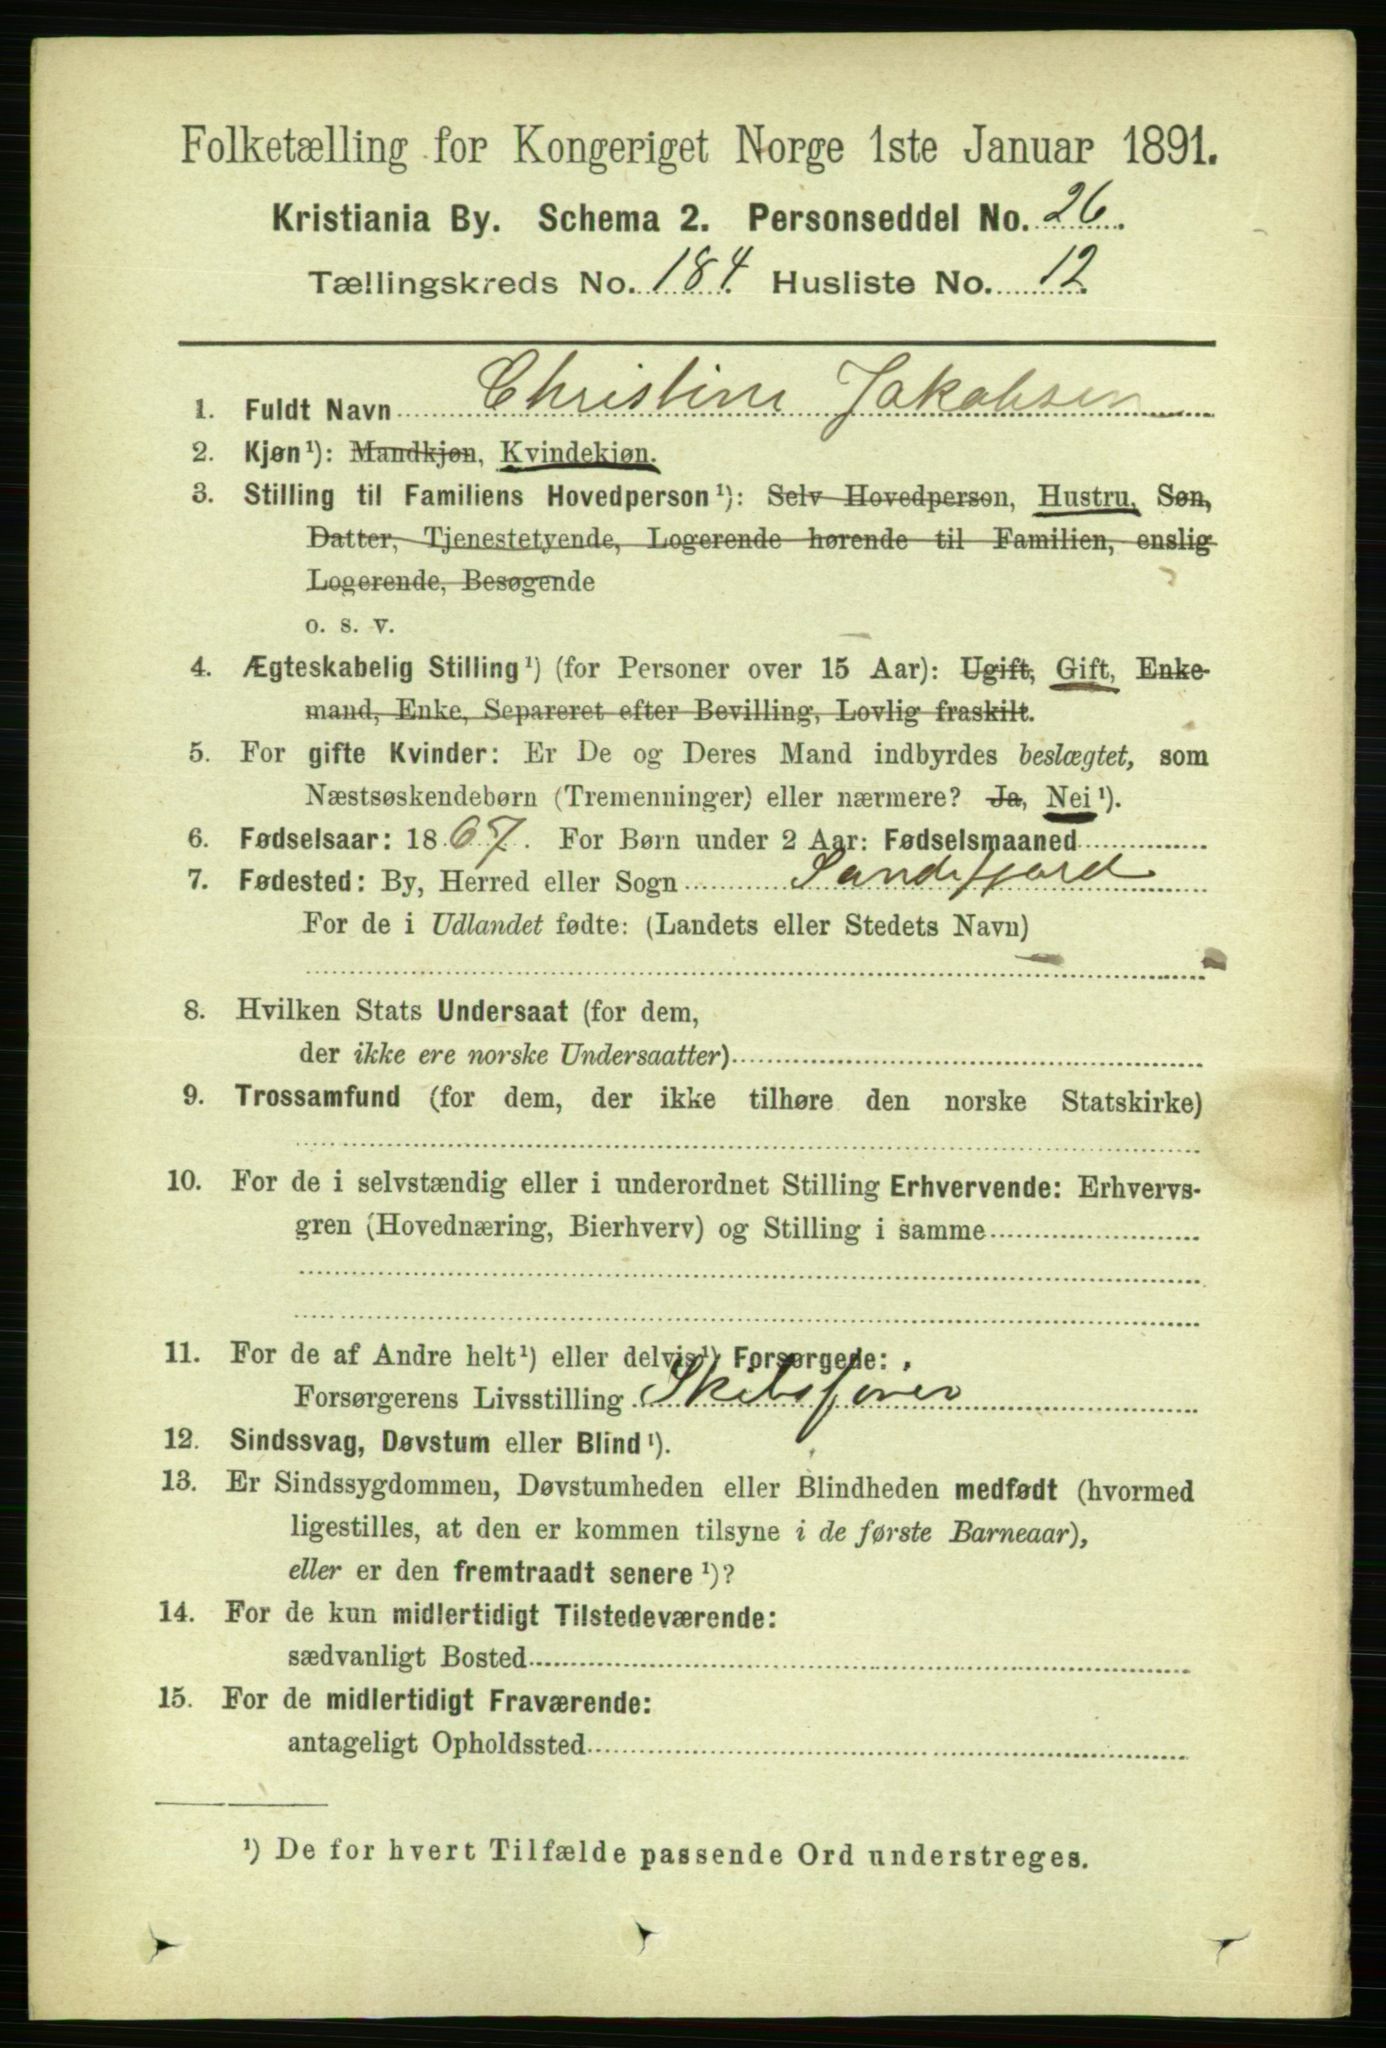 Folketælling for Kongeriget Norge 1ste Januar 1891.
Kristiania By. Schema 2. Personseddel No. 26.
Tællingskreds No. 184. Husliste No. 12.
1. Fuldt Navn Christine Jakobsen
2. Kjøn¹): Mandkjøn, Kvindekjøn.
3. Stilling til Familiens Hovedperson¹): Selv Hovedperson, Hustru, Søn,
Datter, Tjenestetyende, Logerende hørende til Familien, enslig
Logerende, Besøgende
o. s. v.
4. Ægteskabelig Stilling¹) (for Personer over 15 Aar): Ugift, Gift, Enke-
mand, Enke, Separeret efter Bevilling, Lovlig fraskilt.
5. For gifte Kvinder: Er De og Deres Mand indbyrdes beslægtet, som
Næstsøskendebørn (Tremenninger) eller nærmere? Ja, Nei¹).
6. Fødselsaar: 1867. For Børn under 2 Aar: Fødselsmaaned
7. Fødested: By, Herred eller Sogn Sandefjord
For de i Udlandet fødte: (Landets eller Stedets Navn)
8. Hvilken Stats Undersaat (for dem,
der ikke ere norske Undersaatter)
9. Trossamfund (for dem, der ikke tilhøre den norske Statskirke)
10. For de i selvstændig eller i underordnet Stilling Erhvervende: Erhvervs-
gren (Hovednæring, Bierhverv) og Stilling i samme
11. For de af Andre helt¹) eller delvis¹) Forsørgede:
Forsørgerens Livsstilling Skibsfører
12. Sindssvag, Døvstum eller Blind¹).
13. Er Sindssygdommen, Døvstumheden eller Blindheden medfødt (hvormed
ligestilles, at den er kommen tilsyne i de første Barneaar),
eller er den fremtraadt senere¹)?
14. For de kun midlertidigt Tilstedeværende:
sædvanligt Bosted
15. For de midlertidigt Fraværende:
antageligt Opholdssted
¹) De for hvert Tilfælde passende Ord understreges.